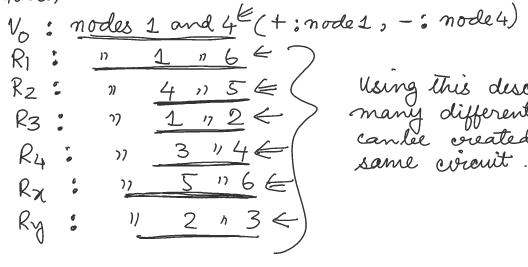 V₀ : nodes 1 and 4 (+ : node 1, - : node 4)
R1 : " 1 " 6
R2 : " 4 " 5
R3 : " 1 " 2
R4 : " 3 " 4
Rx : " 5 " 6
Ry : " 2 " 3
Using this desc
many different
can be created
same circuit.